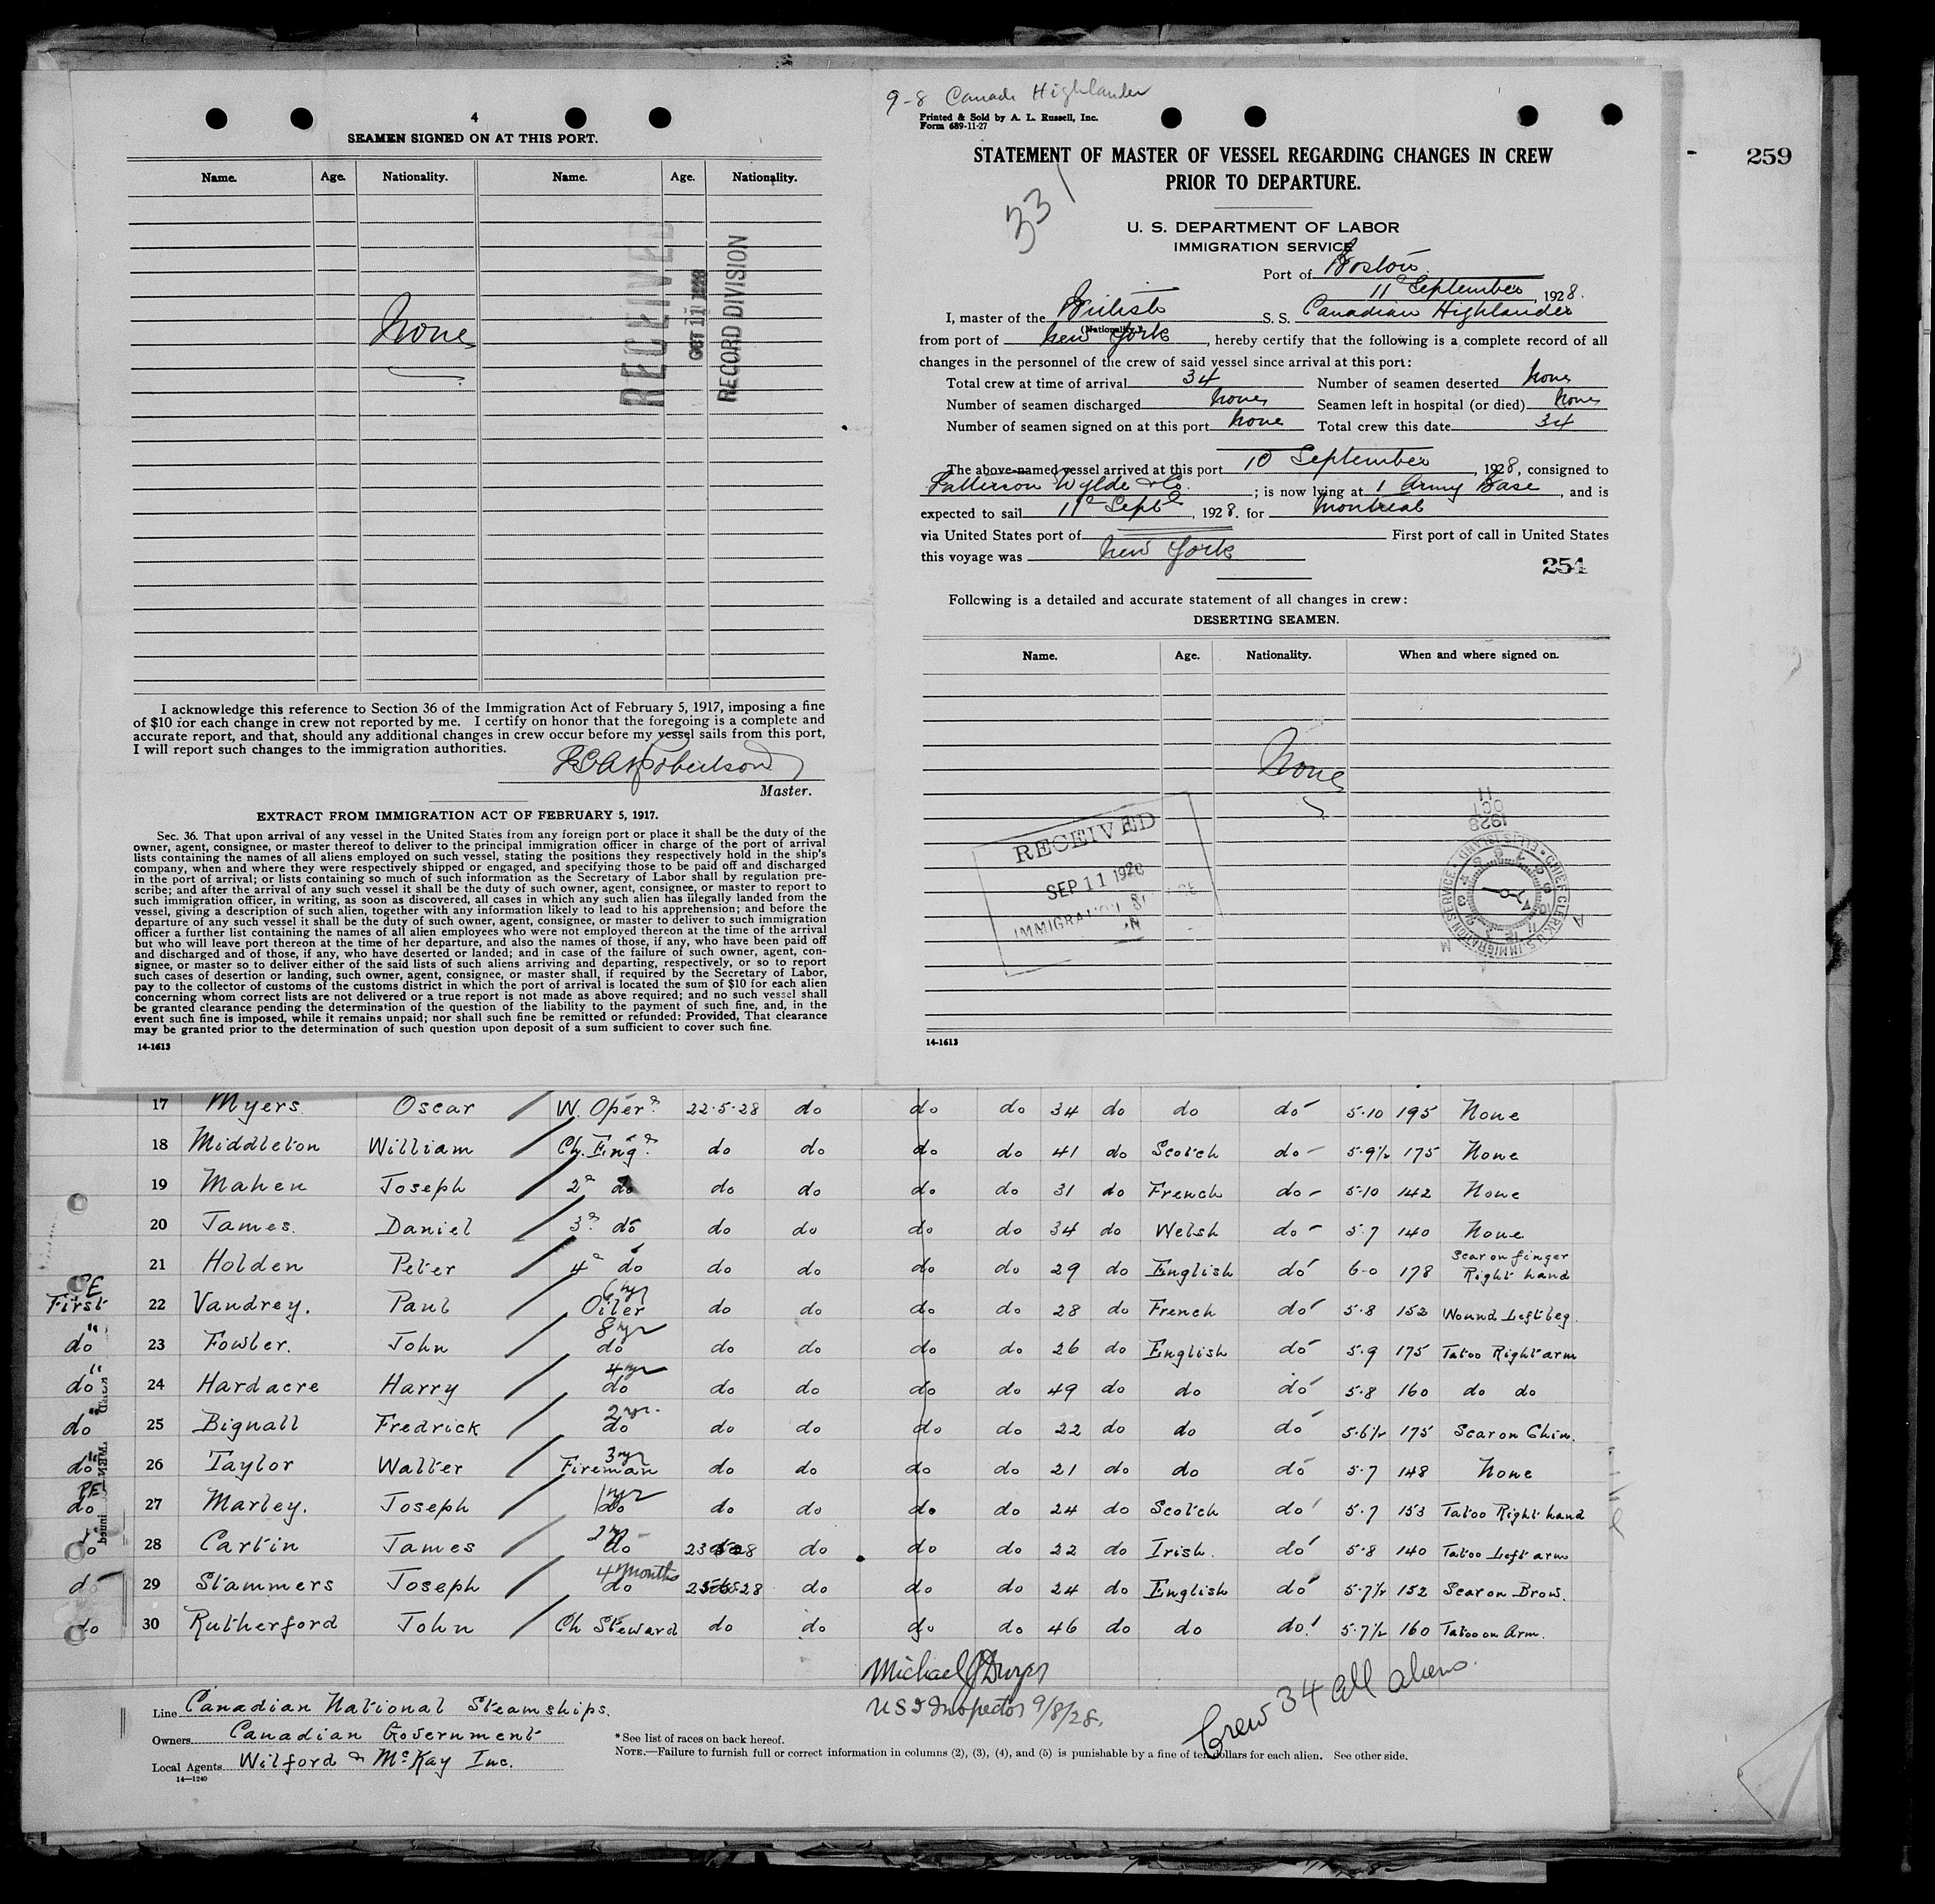 4
SEAMEN SIGNED ON AT THIS PORT.
Name. Age. Nationality. Name. Age. Nationality.
None
RECEIVED
OCT 11 1928
RECORD DIVISION
I acknowledge this reference to Section 36 of the Immigration Act of February 5, 1917, imposing a fine
of $10 for each change in crew not reported by me. I certify on honor that the foregoing is a complete and
accurate report, and that, should any additional changes in crew occur before my vessel sails from this port,
I will report such changes to the immigration authorities.
Robertson
Master.
EXTRACT FROM IMMIGRATION ACT OF FEBRUARY 5, 1917.
Sec. 36. That upon arrival of any vessel in the United States from any foreign port or place it shall be the duty of the
owner, agent, consignee, or master thereof to deliver to the principal immigration officer in charge of the port of arrival
lists containing the names of all aliens employed on such vessel, stating the positions they respectively hold in the ship's
company, when and where they were respectively shipped or engaged, and specifying those to be paid off and discharged
in the port of arrival; or lists containing so much of such information as the Secretary of Labor shall by regulation pre-
scribe; and after the arrival of any such vessel it shall be the duty of such owner, agent, consignee, or master to report to
such immigration officer, in writing, as soon as discovered, all cases in which any such alien has illegally landed from the
vessel, giving a description of such alien, together with any information likely to lead to his apprehension; and before the
departure of any such vessel it shall be the duty of such owner, agent, consignee, or master to deliver to such immigration
officer a further list containing the names of all alien employees who were not employed thereon at the time of the arrival
but who will leave port thereon at the time of her departure, and also the names of those, if any, who have been paid off
and discharged and of those, if any, who have deserted or landed; and in case of the failure of such owner, agent, con-
signee, or master so to deliver either of the said lists of such aliens arriving and departing, respectively, or so to report
such cases of desertion or landing, such owner, agent, consignee, or master shall, if required by the Secretary of Labor,
pay to the collector of customs of the customs district in which the port of arrival is located the sum of $10 for each alien
concerning whom correct lists are not delivered or a true report is not made as above required; and no such vessel shall
be granted clearance pending the determination of the question of the liability to the payment of such fine, and, in the
event such fine is imposed, while it remains unpaid; nor shall such fine be remitted or refunded: Provided, That clearance
may be granted prior to the determination of such question upon deposit of a sum sufficient to cover such fine.
14-1613
9-8 Canad Highlander
Printed & Sold by A. L. Russell, Inc.
Form 689-11-27
STATEMENT OF MASTER OF VESSEL REGARDING CHANGES IN CREW
PRIOR TO DEPARTURE.
259
331
U. S. DEPARTMENT OF LABOR
IMMIGRATION SERVICE
Port of Boston
11 September, 1928.
I, master of the British S. S. Canadian Highlander
(Nationality.)
from port of New York, hereby certify that the following is a complete record of all
changes in the personnel of the crew of said vessel since arrival at this port:
Total crew at time of arrival 34 Number of seamen deserted None
Number of seamen discharged None Seamen left in hospital (or died) None
Number of seamen signed on at this port None Total crew this date 34
The above-named vessel arrived at this port 10 September, 1928, consigned to
Patterson Wylde & Co.; is now lying at 1 Army Base, and is
expected to sail 11 Sept, 1928. for Montreal
via United States port of First port of call in United States
this voyage was New York
254
Following is a detailed and accurate statement of all changes in crew:
DESERTING SEAMEN.
Name. Age. Nationality. When and where signed on.
None
RECEIVED
SEP 11 1928
IMMIGRATION
1928
OCT
11
CHIEF CLERK U.S. IMMIGRATION SERVICE · ELLIS ISLAND
14-1613
17 Myers Oscar W. Oper 22·5·28 do do do 34 do do do 5·10 195 None
18 Middleton William Ch. Eng. do do do do 41 do Scotch do 5·9½ 175 None
19 Mahen Joseph 2 do do do do do 31 do French do 5·10 142 None
20 James Daniel 3 do do do do do 34 do Welsh do 5·7 140 None
21 Holden Peter 4 do do do do do 29 do English do 6-0 178 Scar on finger Right hand
PE First 22 Vandrey. Paul 6 yr Oiler do do do do 28 do French do 5·8 152 Wound Left leg.
do 23 Fowler. John 8 yr do do do do do 26 do English do 5·9 175 Tatoo Right arm
do 24 Hardacre Harry 4 yr do do do do do 49 do do do 5·8 160 do do
do 25 Bignall Fredrick 2 yr. do do do do do 22 do do do 5·6½ 175 Scar on Chin.
do 26 Taylor Walter 3 yr Fireman do do do do 21 do do do 5·7 148 None
PE do 27 Marley. Joseph 1 yr do do do do do 24 do Scotch do 5·7 153 Tatoo Right hand
do 28 Cartin James 2 yr do do do do 22 do Irish. do 5·8 140 Tatoo Left arm
do 29 Stammers Joseph 4 Months do do do do 24 do English do 5·7½ 152 Scar on Brow.
do 30 Rutherford John Ch Steward do do do do 46 do do do 5·7½ 160 Tatoo on Arm.
Michael J Dwyer
US I Inspector 9/8/28.
Crew 34 all aliens.
Line Canadian National Steamships.
Owners Canadian Government
Local Agents Wilford & McKay Inc.
14—1240
*See list of races on back hereof.
NOTE.—Failure to furnish full or correct information in columns (2), (3), (4), and (5) is punishable by a fine of ten dollars for each alien. See other side.